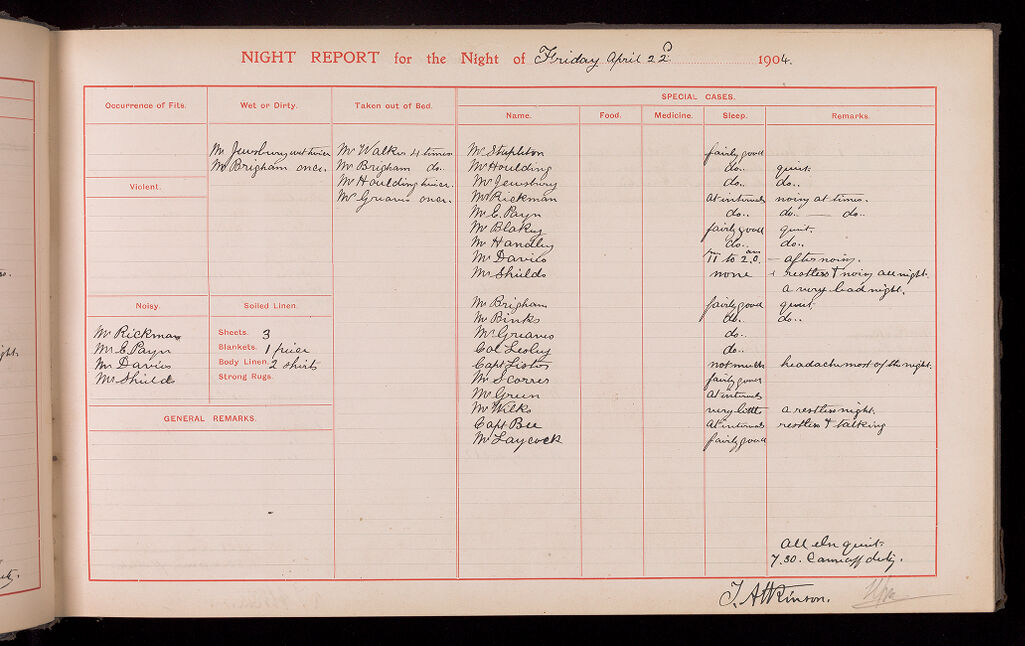 NIGHT REPORT for the Night of Friday April 22 1904.
Occurrence of Fits.
Wet or Dirty.
Taken out of Bed.
SPECIAL CASES.
Name.
Food.
Medicine.
Sleep.
Remarks.
Mr Jewsbury wet twice
Mr Brigham once.
Mr Walker 4 times
Mr Brigham do..
Mr Houlding twice.
Mr Greaves once.
Violent.
Noisy.
Mr Rickman
Mr E. Payn
Mr Davies
Mr Shields
Soiled Linen.
Sheets. 3
Blankets. 1 piece
Body Linen. 2 shirts
Strong Rugs.
GENERAL REMARKS.
Mr Stapleton fairly good
Mr Houlding do.. quiet.
Mr Jewsbury do.. do..
Mr Rickman at intervals noisy at times.
Mr E. Payn do.. do. — do..
Mr Blakey fairly good quiet.
Mr Handley do.. do..
Mr Davies 11 pm to 2.0 am — after noisy.
Mr Shields none + restless & noisy all night.
a very bad night.
Mr Brigham fairly good quiet.
Mr Binks do. do..
Mr Greaves do..
Col Lesley do..
Capt Lister not much headache most of the night.
Mr Scorrer fairly good
Mr Green at intervals
Mr Wilks very little a restless night.
Capt Bee at intervals restless & talking
Mr Laycock fairly good
All else quiet.
7.30. Came off duty.
T. Atkinson.